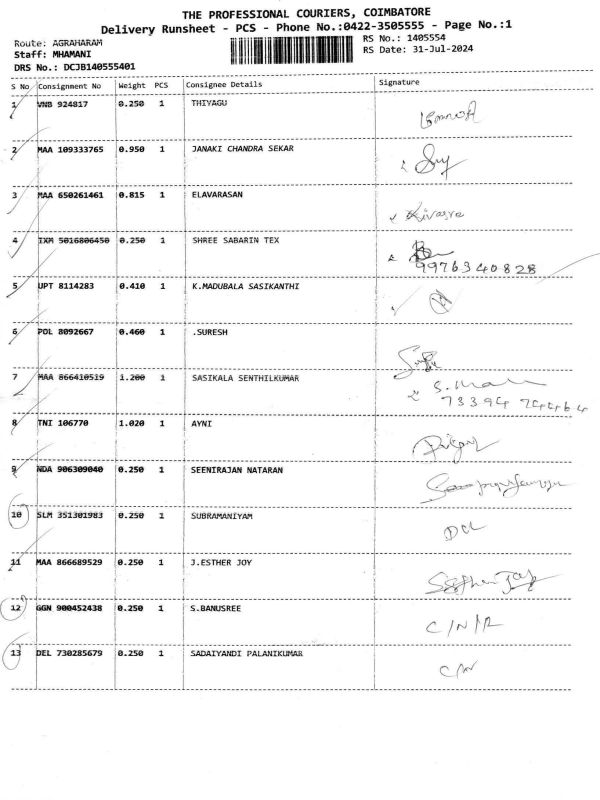 THE PROFESSIONAL COURIERS, COIMBATORE
Delivery Runsheet - PCS - Phone No.:0422-3505555 - Page No.:1
Route: AGRAHARAM
RS No.: 1405554
Staff: MHAMANI
RS Date: 31-Jul-2024
DRS No.: DCJB140555401
S No Consignment No Weight PCS Consignee Details Signature
1 VNB 924817 0.250 1 THIYAGU
2 MAA 109333765 0.950 1 JANAKI CHANDRA SEKAR
3 MAA 650261461 0.815 1 ELAVARASAN
4 IXM 5016806450 0.250 1 SHREE SABARIN TEX
9976340828
5 UPT 8114283 0.410 1 K.MADUBALA SASIKANTHI
6 POL 8092667 0.460 1 .SURESH
7 MAA 866410519 1.200 1 SASIKALA SENTHILKUMAR
73394 74464
8 TNI 106770 1.020 1 AYNI
9 NDA 906309040 0.250 1 SEENIRAJAN NATARAN
10 SLM 351301983 0.250 1 SUBRAMANIYAM
11 MAA 866689529 0.250 1 J.ESTHER JOY
12 GGN 900452438 0.250 1 S.BANUSREE
C/N/R
13 DEL 730285679 0.250 1 SADAIYANDI PALANIKUMAR
C/N